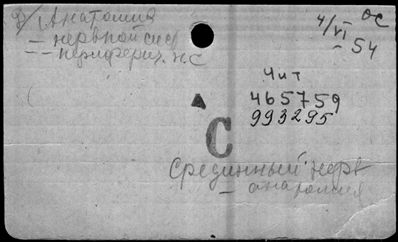 Анатомия
– нервной сис
– – периферич. н.С
ОС
4/VI
– 54
Чит
465759
993295
С
Срединный нерв
– анатомия